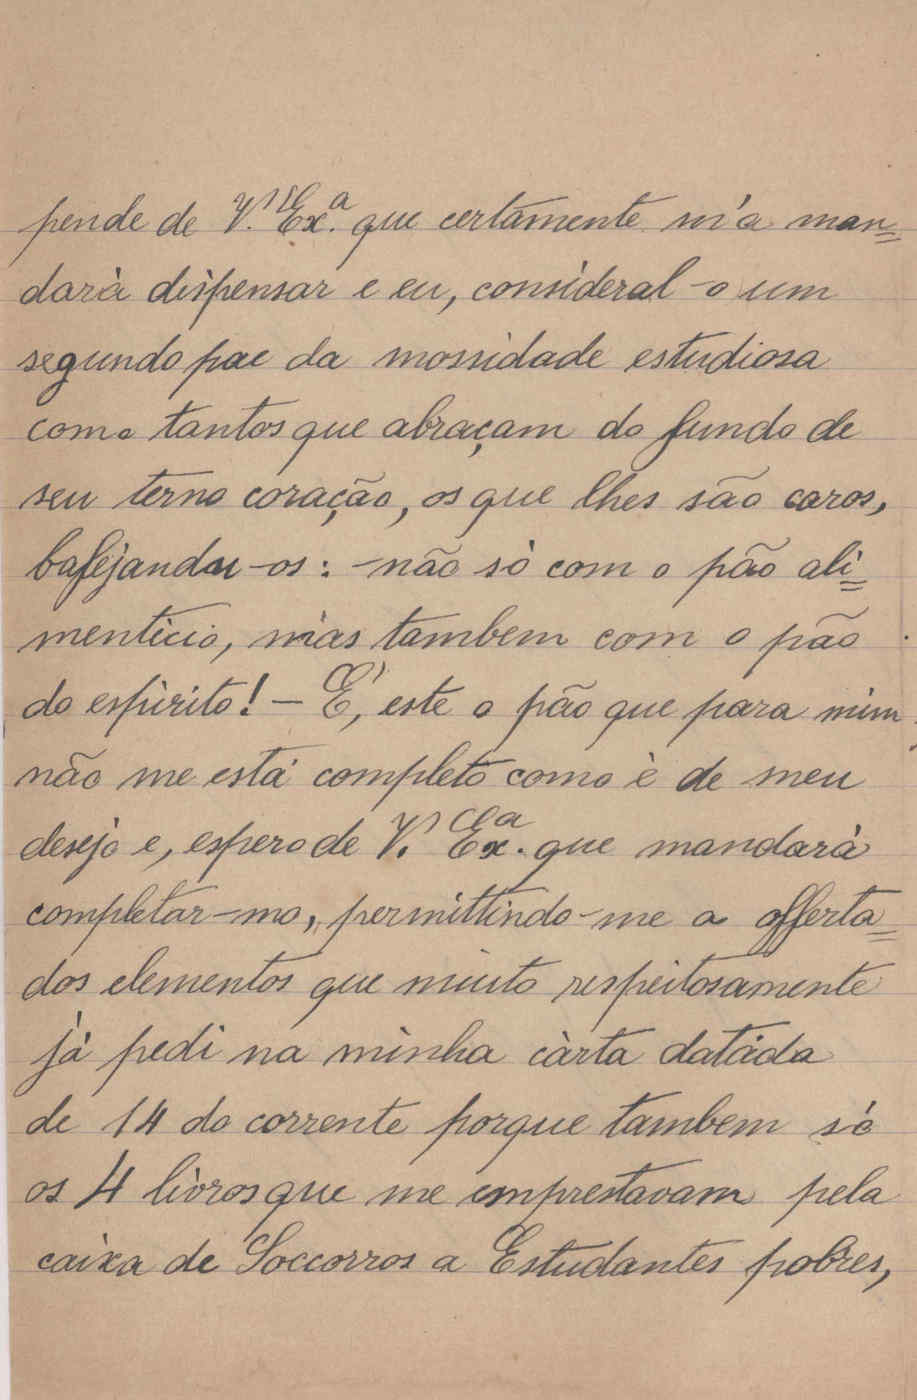 pende de V. Ex.ª que certamente m'a man=
dará dispensar e eu, consideral-o um
segundo pae da mossidade estudiosa
como tantos que abraçam do fundo de
seu terno coração, os que lhes são caros,
bafejandu-os: -não só com o pão ali=
menticio, mas tambem com o pão
do espirito! - É, este o pão que para mim
não me está completo como è de meu
desejo e, espero de V. Ex.ª que mandará
completar-mo, permittindo-me a offerta=
dos elementos que muito respeitosamente
já pedi na minha càrta datáda
de 14 do corrente porque tambem só
os 4 livros que me emprestavam pela
caixa de Soccorros a Estudantes pobres,